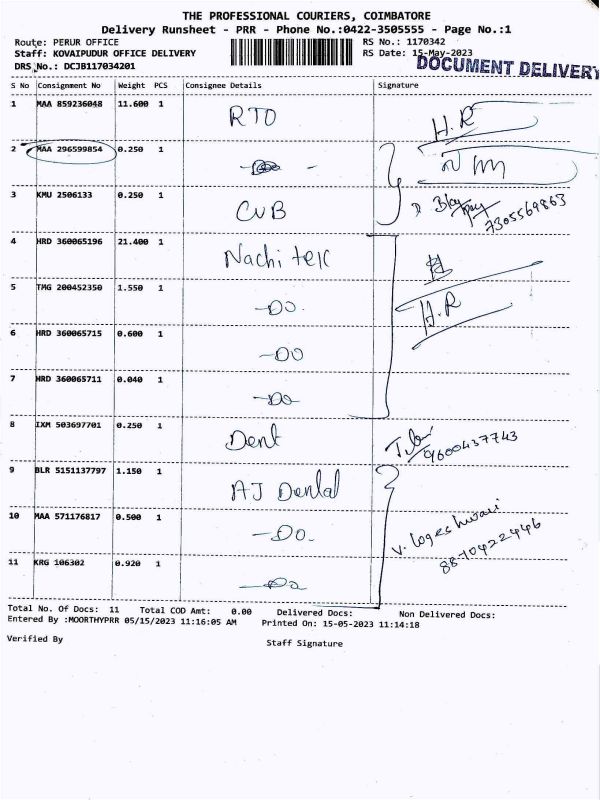 THE PROFESSIONAL COURIERS, COIMBATORE
Delivery Runsheet - PRR - Phone No.:0422-3505555 - Page No.:1
Route: PERUR OFFICE RS No.: 1170342
Staff: KOVAIPUDUR OFFICE DELIVERY RS Date: 15-May-2023
DRS No.: DCJB117034201 DOCUMENT DELIVERY
S No Consignment No Weight PCS Consignee Details Signature
1 MAA 859236048 11.600 1 RTO H.R
2 MAA 296599854 0.250 1
3 KMU 2506133 0.250 1 CUB 7305569863
4 HRD 360065196 21.400 1 Nachi tek
5 TMG 200452350 1.550 1 -DO. H.R
6 HRD 360065715 0.600 1 -DO
7 HRD 360065711 0.040 1 -Do
8 IXM 503697701 0.250 1 Dent 9600437743
9 BLR 5151137797 1.150 1 AJ Dental
10 MAA 571176817 0.500 1 -Do. V. Logeshwari
8870422446
11 KRG 106302 0.920 1 -Do
Total No. Of Docs: 11 Total COD Amt: 0.00 Delivered Docs: Non Delivered Docs:
Entered By :MOORTHYPRR 05/15/2023 11:16:05 AM Printed On: 15-05-2023 11:14:18
Verified By Staff Signature